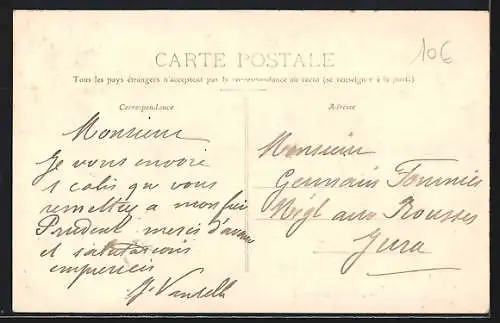 106
CARTE POSTALE
Tous les pays étrangers n'acceptent pas la correspondance au recto (se renseigner à la poste.)
Correspondance
Monsieur
Je vous envoie
1 colis que vous
remettez a mon
Prudent merci d'avance
et salutations
empressées
J. Vandelle
Adresse
Monsieur
Germain
Négt aux Rousses
Jura